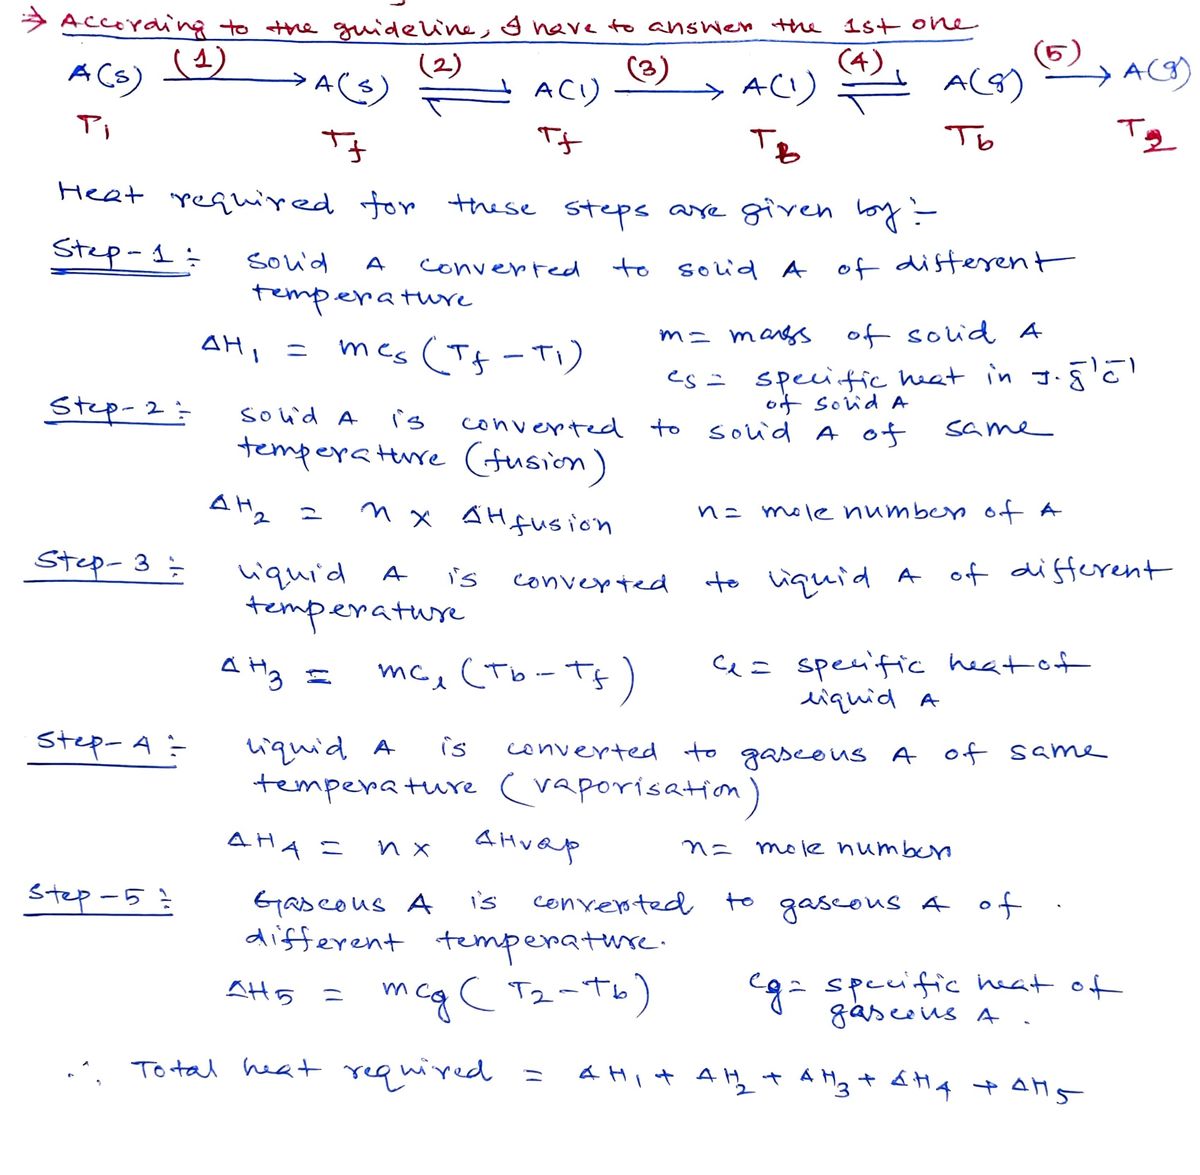 ⇒ According to the guideline, I have to answer the 1st one
A(s) (1)→ A(s) (2)⇌ A(l) (3)→ A(l) (4)⇌ A(g) (5)→ A(g)
T1 Tf Tf TB Tb T2
Heat required for these steps are given by :-
Step-1 :- solid A converted to solid A of different
temperature
ΔH1 = mcs (Tf - T1) m = mass of solid A
cs = specific heat in J.g⁻¹c⁻¹
of solid A
Step-2 :- solid A is converted to solid A of same
temperature (fusion)
ΔH2 = n x ΔHfusion n = mole number of A
Step-3 :- liquid A is converted to liquid A of different
temperature
ΔH3 = mcl (Tb - Tf) cl = specific heat of
liquid A
Step-4 :- liquid A is converted to gaseous A of same
temperature (vaporisation)
ΔH4 = n x ΔHvap n = mole number
Step-5 :- Gaseous A is converted to gaseous A of
different temperature.
ΔH5 = mcg (T2 - Tb) cg = specific heat of
gaseous A .
∴ Total heat required = ΔH1 + ΔH2 + ΔH3 + ΔH4 + ΔH5